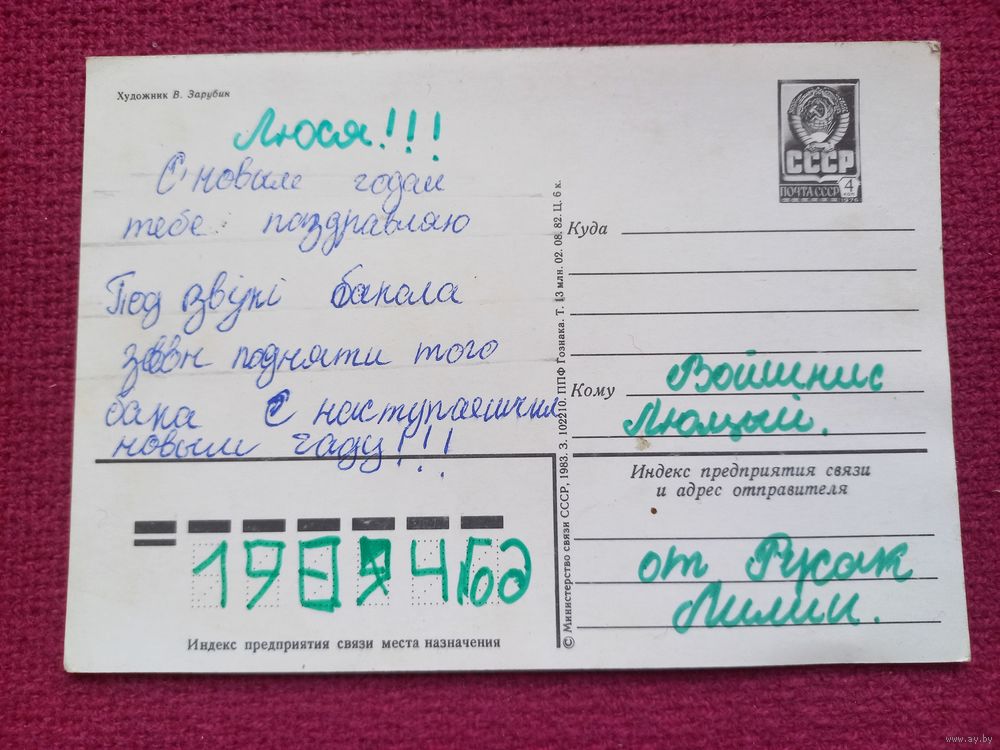 Художник В. Зарубин
Люся!!!
С новым годам
тебе поздравляю
Под звукі бакола
звон подняти того
бака С наступаяшчим
новым гаду!!!
СССР
ПОЧТА СССР 4 коп
1976
Куда
Кому
Войшнис
Люцый.
Индекс предприятия связи
и адрес отправителя
от Русак
Лилии.
1984 год
Индекс предприятия связи места назначения
© Министерство связи СССР, 1983. З. 102210. ППФ Гознака. Т. 13 млн. 02. 08. 82. Ц. 6 к.
www.ay.by